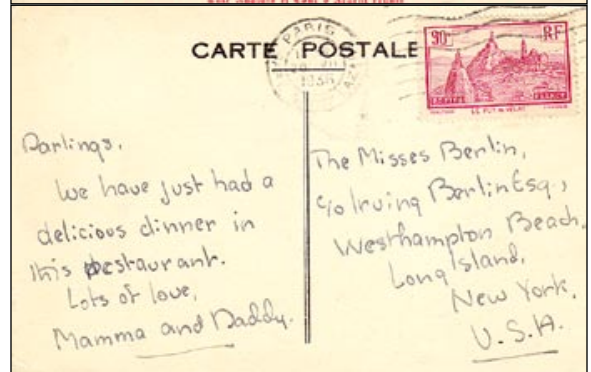 CARTE POSTALE
PARIS
1936
90c RF
POSTES FRANCE
LE PUY EN VELAY
Darlings,
We have just had a
delicious dinner in
this restaurant.
Lots of love,
Mamma and Daddy.
The Misses Berlin,
c/o Irving Berlin Esq.,
Westhampton Beach,
Long Island,
New York,
U.S.A.